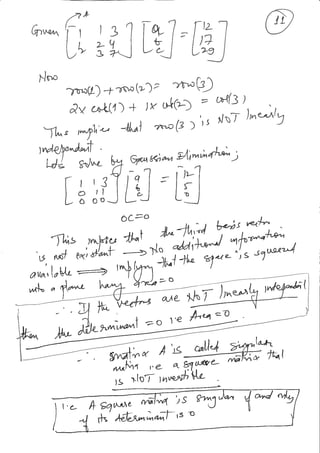 11
A
Given [1 1 3 / 1 2 4 / 2 3 7] [a / b / c] = [12 / 17 / 29]
Now
row(1) + row(2) = row(3)
2x col(1) + 1x col(2) = col(3)
This implies that row(3) is NOT linearly
independant.
Lets Solve by Gaussian Elimination;
[1 1 3 / 0 1 1 / 0 0 0] [a / b / c] = [12 / 5 / 0]
0C=0
This implies that the third basis vector
is not existant → No additional information
available ⟹ implying that the space is squeezed
into a plane having area = 0
∴ If the vectors are NOT linearly independant
then the determinant = 0 i.e Area = 0
∴ matrix A is called Singular
matrix i.e a square matrix that
is NOT invertible
i.e A square matrix is singular if and only
if its determinant is 0